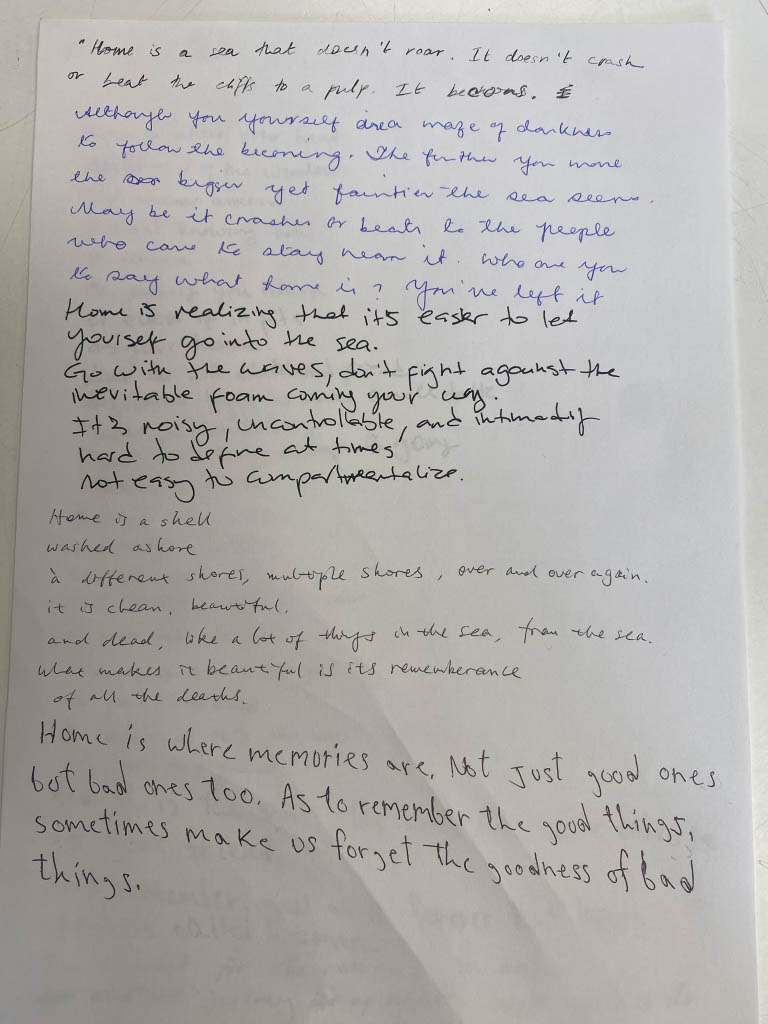 "Home is a sea that doesn't roar. It doesn't crash
or beat the cliffs to a pulp. It becoms.
Although you yourself area maze of darkness
to follow the becoming. The further you move
the bigger yet faintier the sea seems.
May be it crashes or beats to the people
who came to stay near it. Who are you
to say what home is? You've left it
Home is realizing that it's easier to let
yourself go into the sea.
Go with the waves, don't fight against the
inevitable foam coming your way.
It's noisy, uncontrollable, and
hard to define at times
not easy to compartmentalize.
Home is a shell
washed ashore
à different shores, multiple shores, over and over again.
it is clean, beautiful,
and dead, like a lot of things in the sea, from the sea.
what makes it beautiful is its rememberance
of all the deaths.
Home is where memories are. Not just good ones
but bad ones too. As to remember the good things,
sometimes make us forget the goodness of bad
things.